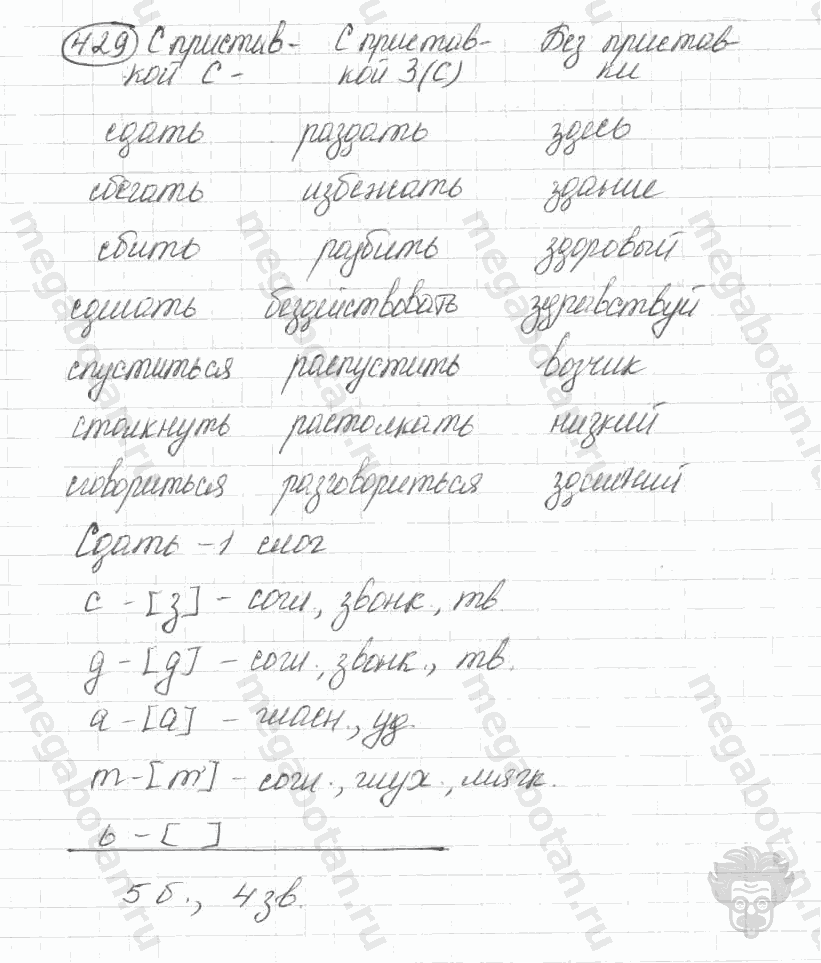 429 С пристав- С пристав- Без пристав-
кой С- кой З(С) ки
сдать раздать здесь
сбегать избежать здание
сбить разбить здоровый
сделать бездействовать здравствуй
спуститься распустить возчик
столкнуть растолкать низкий
сговориться разговориться здешний
Сдать - 1 слог
с - [з] - согл., звонк., тв
д - [д] - согл., звонк., тв.
а - [а] - гласн., уд.
т - [т'] - согл., глух., мягк.
ь - [ ]
5 б., 4 зв.
megabotan.ru